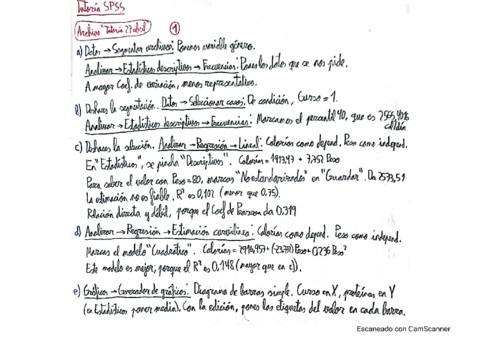 Tutoría SPSS
Archivo "Tutoría 27 abril" 1
a) Datos → Segmentar archivos: Ponemos variable género.
Analizar → Estadísticos descriptivos → Frecuencias: Pones los datos que se nos pide.
A mayor Coef. de variación, menos representativa.
b) Deshaces la segmentación. Datos → Seleccionar casos: De condición, Curso = 1.
Analizar → Estadísticos descriptivos → Frecuencias: Marcamos el percentil 40, que es
c) Deshaces la selección. Analizar → Regresión → Lineal: Calorías como depend. Peso como independ.
En "Estadísticos", se pincha "Descriptivos". Calorías = + Peso
Para saber el valor con Peso = 80, marcas "No estandarizados" en "Guardar". Da 2533,51
La estimación no es fiable. R² es 0,101 (menor que 0.75).
Relación directa y débil, porque el Coef de Pearson da 0.319
d) Analizar → Regresión → Estimación curvilínea: Calorías como depend. Peso como independ.
Marcas el modelo "Cuadrático". Calorías = Peso + 0,236 Peso²
Este modelo es mejor, porque el R² es 0,148 (mayor que en c)).
e) Gráficos → Generador de gráficos: Diagrama de barras simple. Curso en X, proteínas en Y
(en Estadísticos poner media). Con la edición, pones las etiquetas del valor en cada barra.
Escaneado con CamScanner